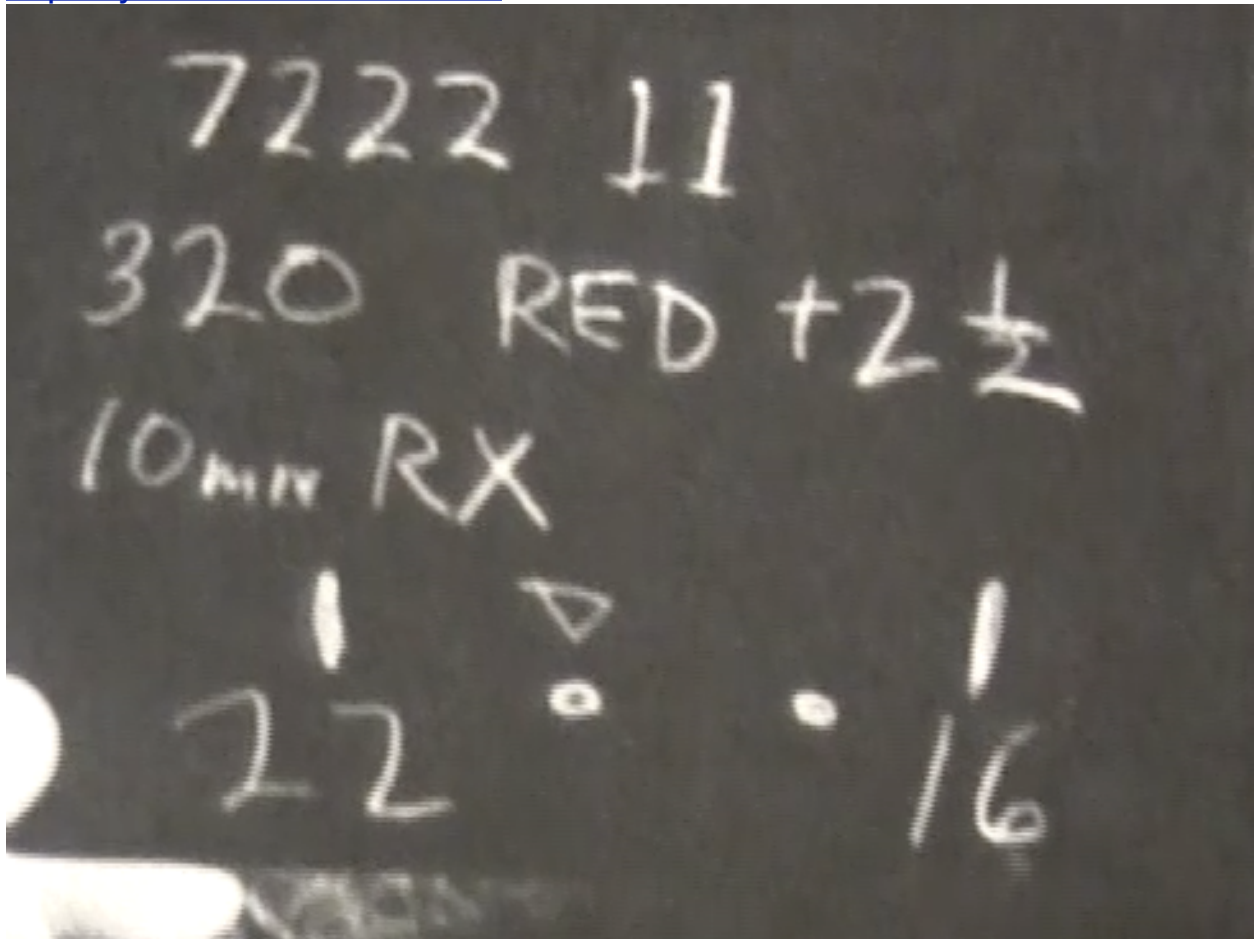 7222 11
320 RED +2 1/2
10min RX
22 16